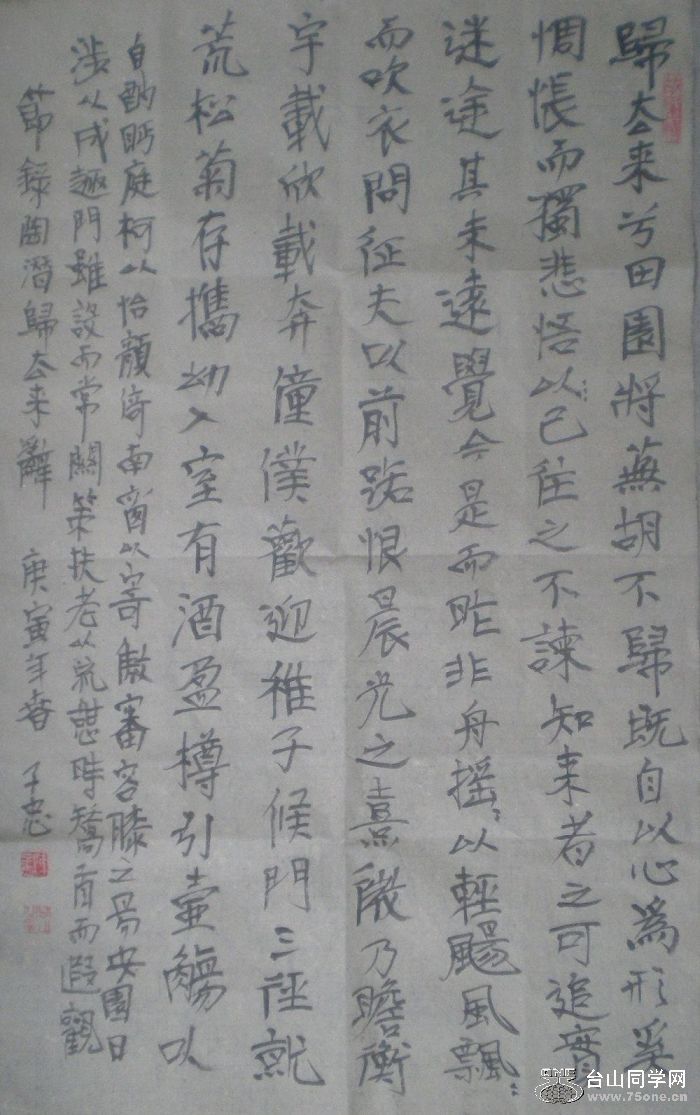 歸去来兮田園將蕪胡不歸既自以心為形奚
惆悵而獨悲悟以已往之不諫知来者之可追實
迷途其未遠覺今是而昨非舟摇以輕颺風飄
而吹衣問征夫以前路恨晨光之熹微乃瞻衡
宇載欣載奔僮僕歡迎稚子候門三徑就
荒松菊存攜幼入室有酒盈樽引壺觴以
自酌眄庭柯以怡顏倚南窗以寄傲審容膝之易安園日
涉以成趣門雖設而常關策扶老以流憩時矯首而遐觀
節錄陶潛歸去来辭 庚寅年春 子忠
台山同学网
www.75one.cn